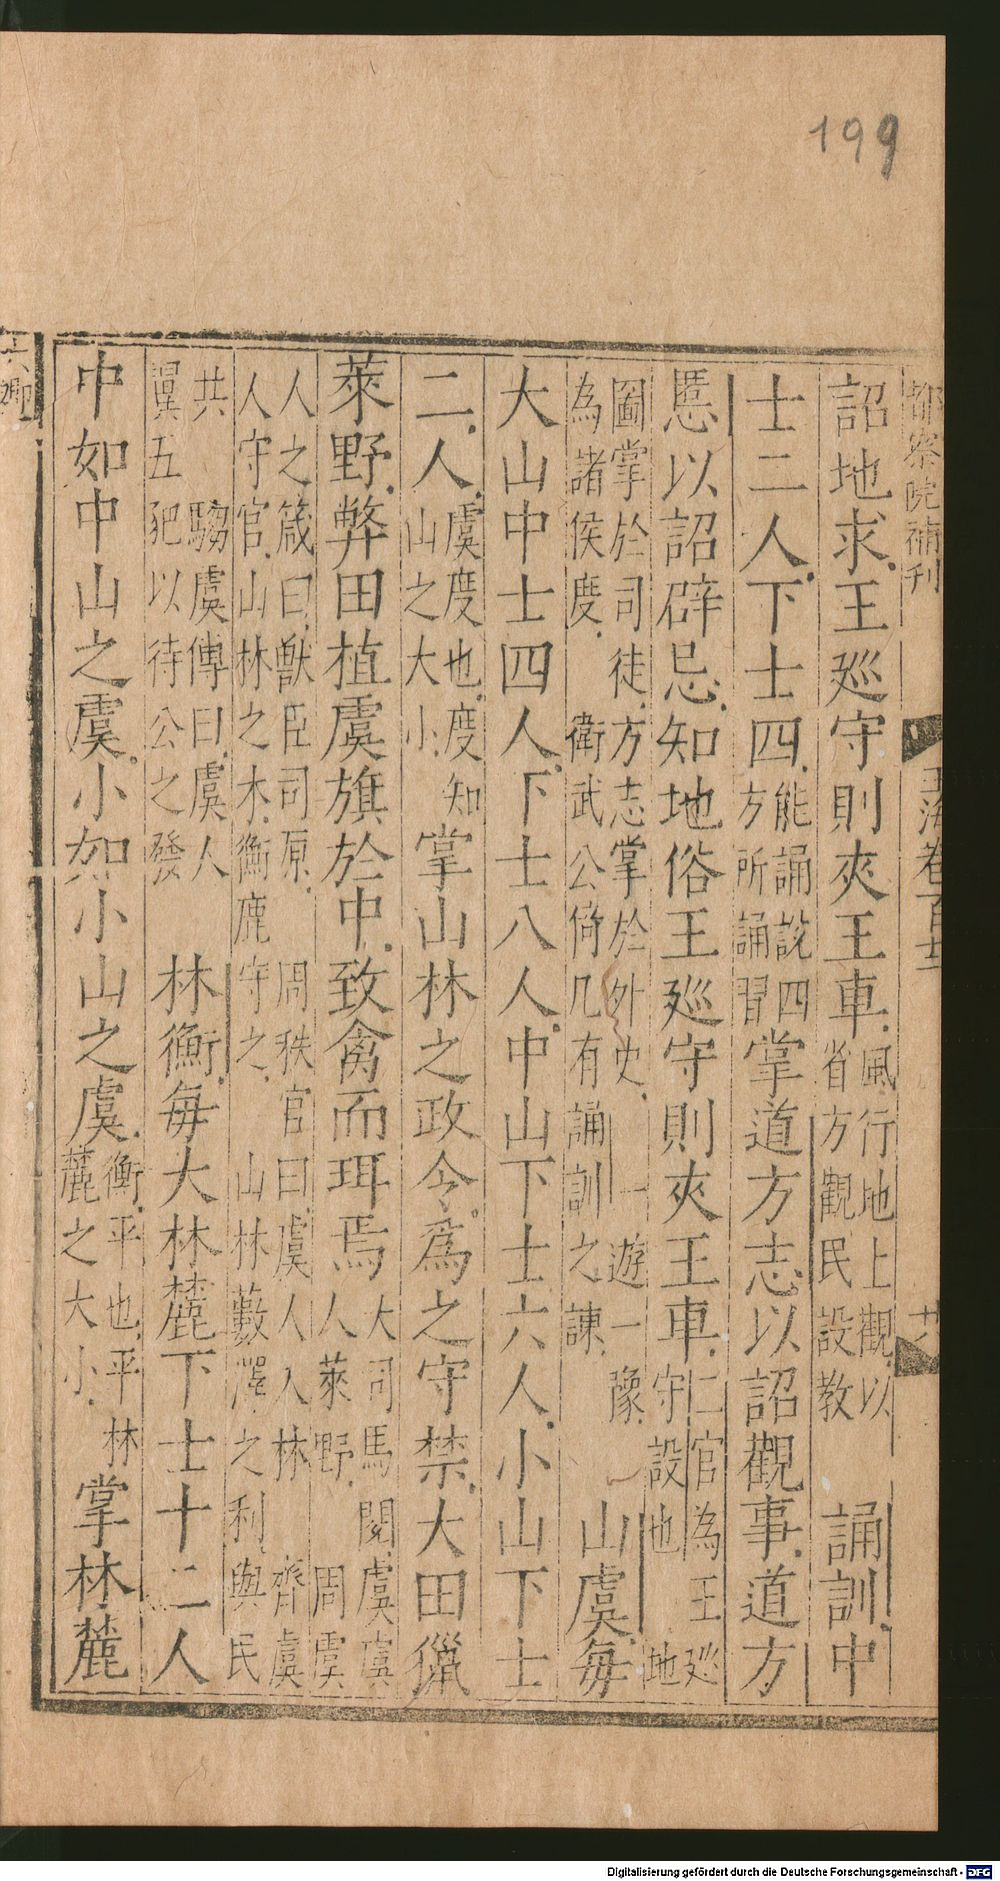 199
都察院補刊
玉海卷百
詔地求王廵守則夾王車風行地上觀以省方觀民設教誦訓中
士二人下士四能誦說四方所誦習掌道方志以詔觀事道方
慝以詔辟忌知地俗王廵守則夾王車二官為王廵守設也地
圖掌於司徒方志掌於外史一遊一豫為諸侯度衛武公倚几有誦訓之諫山虞每
大山中士四人下士八人中山下士六人小山下士
二人虞度也度知山之大小掌山林之政令為之守禁大田獵
萊野弊田植虞旗於中致禽而珥焉大司馬閱虞人萊野周虞
人之箴曰獸臣司原周秩官曰虞人入林齊虞人守官山林之木衡鹿守之山林藪澤之利與民
共騶虞傳曰虞人翼五豝以待公之發林衡每大林麓下士十二人
中如中山之虞小如小山之虞衡平也平林麓之大小掌林麓
六卿
Digitalisierung gefördert durch die Deutsche Forschungsgemeinschaft - DFG